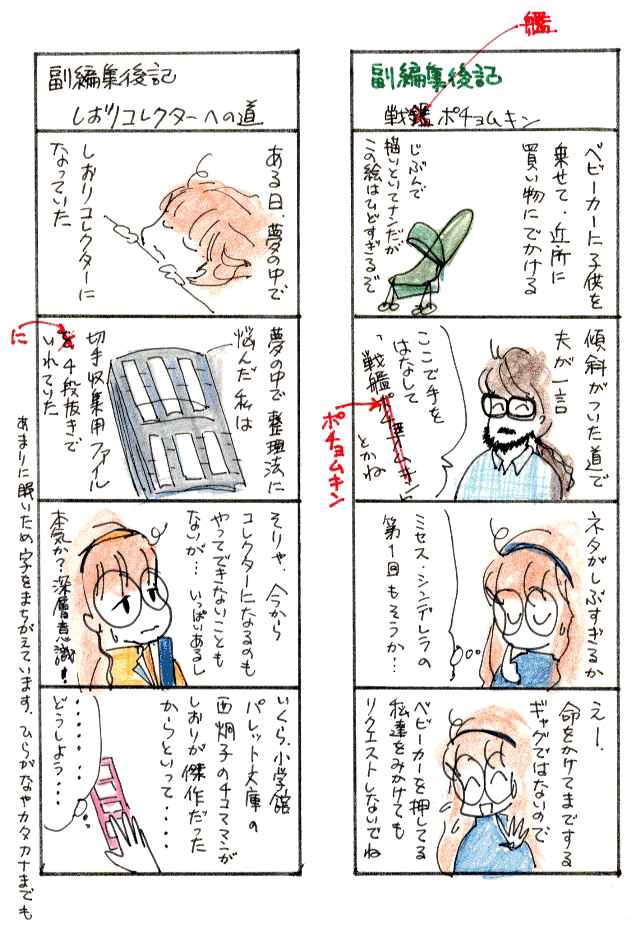 艦
副編集後記
戦鑑ポチョムキン
ベビーカーに子供を
乗せて、近所に
買い物にでかける
じぶんで
描いといてナンだが
この絵はひどすぎるぞ
傾斜がついた道で
夫が一言
ここで手を
はなして
「戦艦
とかね
ポチョムキン
ネタがしぶすぎるか
ミセス・シンデレラの
第1回もそうか…
えー、
命をかけてまでする
ギャグではないので、
ベビーカーを押してる
私達をみかけても
リクエストしないでね
副編集後記
しおりコレクターへの道
ある日、夢の中で
しおりコレクターに
なっていた
夢の中で整理法に
悩んだ私は
切手収集用ファイル
を4段抜きで
いれていた
に
そりゃ、今から
コレクターになるのも
やってできないことも
ないが…いっぱいあるし
本気か?深層意識!
いくら、小学館
パレット文庫の
西炯子のチョコマンが
しおりが傑作だった
からといって・・・・
・・・・・・・
どうしよう・・・
あまりに眠いため字をまちがえています。ひらがなやカタカナまでも